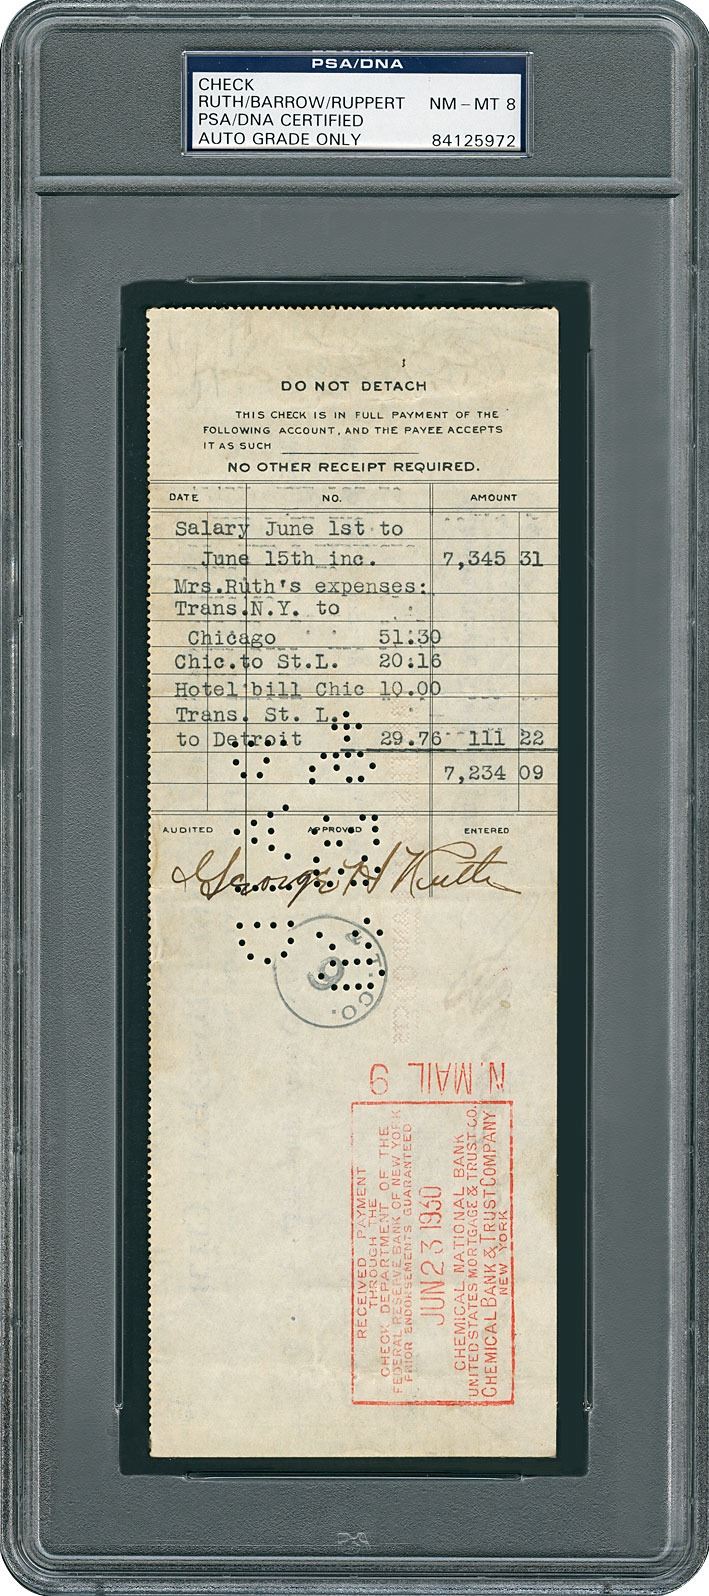 PSA/DNA
CHECK
RUTH/BARROW/RUPPERT NM-MT 8
PSA/DNA CERTIFIED
AUTO GRADE ONLY 84125972
DO NOT DETACH
THIS CHECK IS IN FULL PAYMENT OF THE
FOLLOWING ACCOUNT, AND THE PAYEE ACCEPTS
IT AS SUCH
NO OTHER RECEIPT REQUIRED.
DATE NO. AMOUNT
Salary June 1st to
June 15th inc. 7,345 31
Mrs.Ruth's expenses:
Trans.N.Y. to
Chicago 51.30
Chic.to St.L. 20.16
Hotel bill Chic 10.00
Trans. St. L.
to Detroit 29.76 111 22
7,234 09
AUDITED APPROVED ENTERED
George H Ruth
& T. CO.
9
N. MAIL 9
RECEIVED PAYMENT
THROUGH THE
CHECK DEPARTMENT OF THE
FEDERAL RESERVE BANK OF NEW YORK
PRIOR ENDORSEMENTS GUARANTEED
JUN 23 1930
CHEMICAL NATIONAL BANK
UNITED STATES MORTGAGE & TRUST CO.
CHEMICAL BANK & TRUST COMPANY
NEW YORK